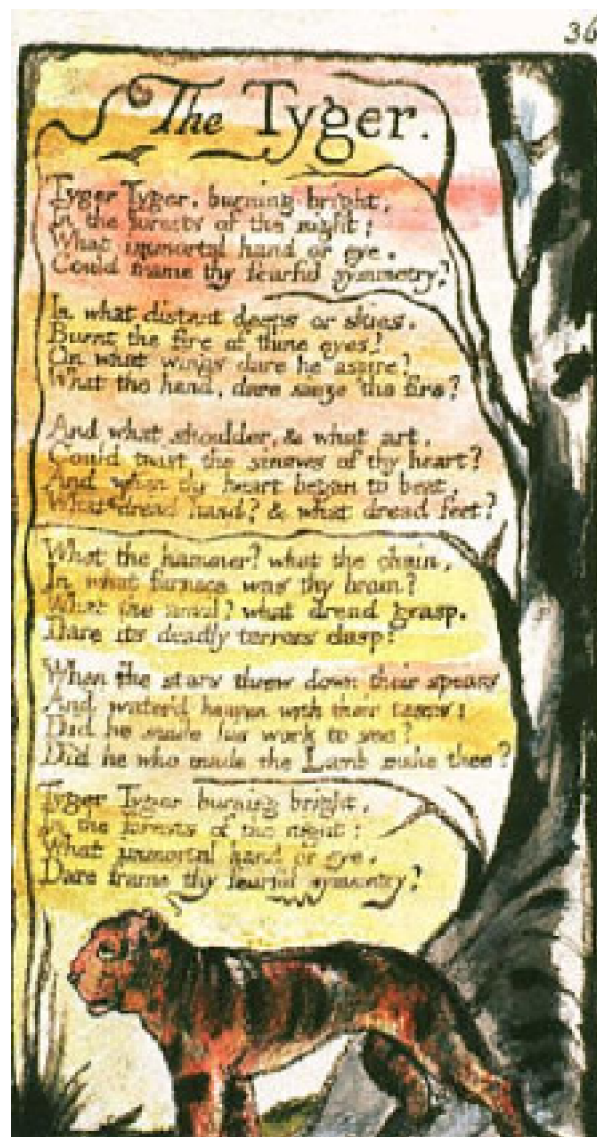 36
The Tyger.
Tyger Tyger, burning bright,
In the forests of the night;
What immortal hand or eye,
Could frame thy fearful symmetry?
In what distant deeps or skies,
Burnt the fire of thine eyes?
On what wings dare he aspire?
What the hand, dare sieze the fire?
And what shoulder, & what art,
Could twist the sinews of thy heart?
And when thy heart began to beat,
What dread hand? & what dread feet?
What the hammer? what the chain,
In what furnace was thy brain?
What the anvil? what dread grasp,
Dare its deadly terrors clasp?
When the stars threw down their spears
And water'd heaven with their tears:
Did he smile his work to see?
Did he who made the Lamb make thee?
Tyger Tyger burning bright,
In the forests of the night:
What immortal hand or eye,
Dare frame thy fearful symmetry?